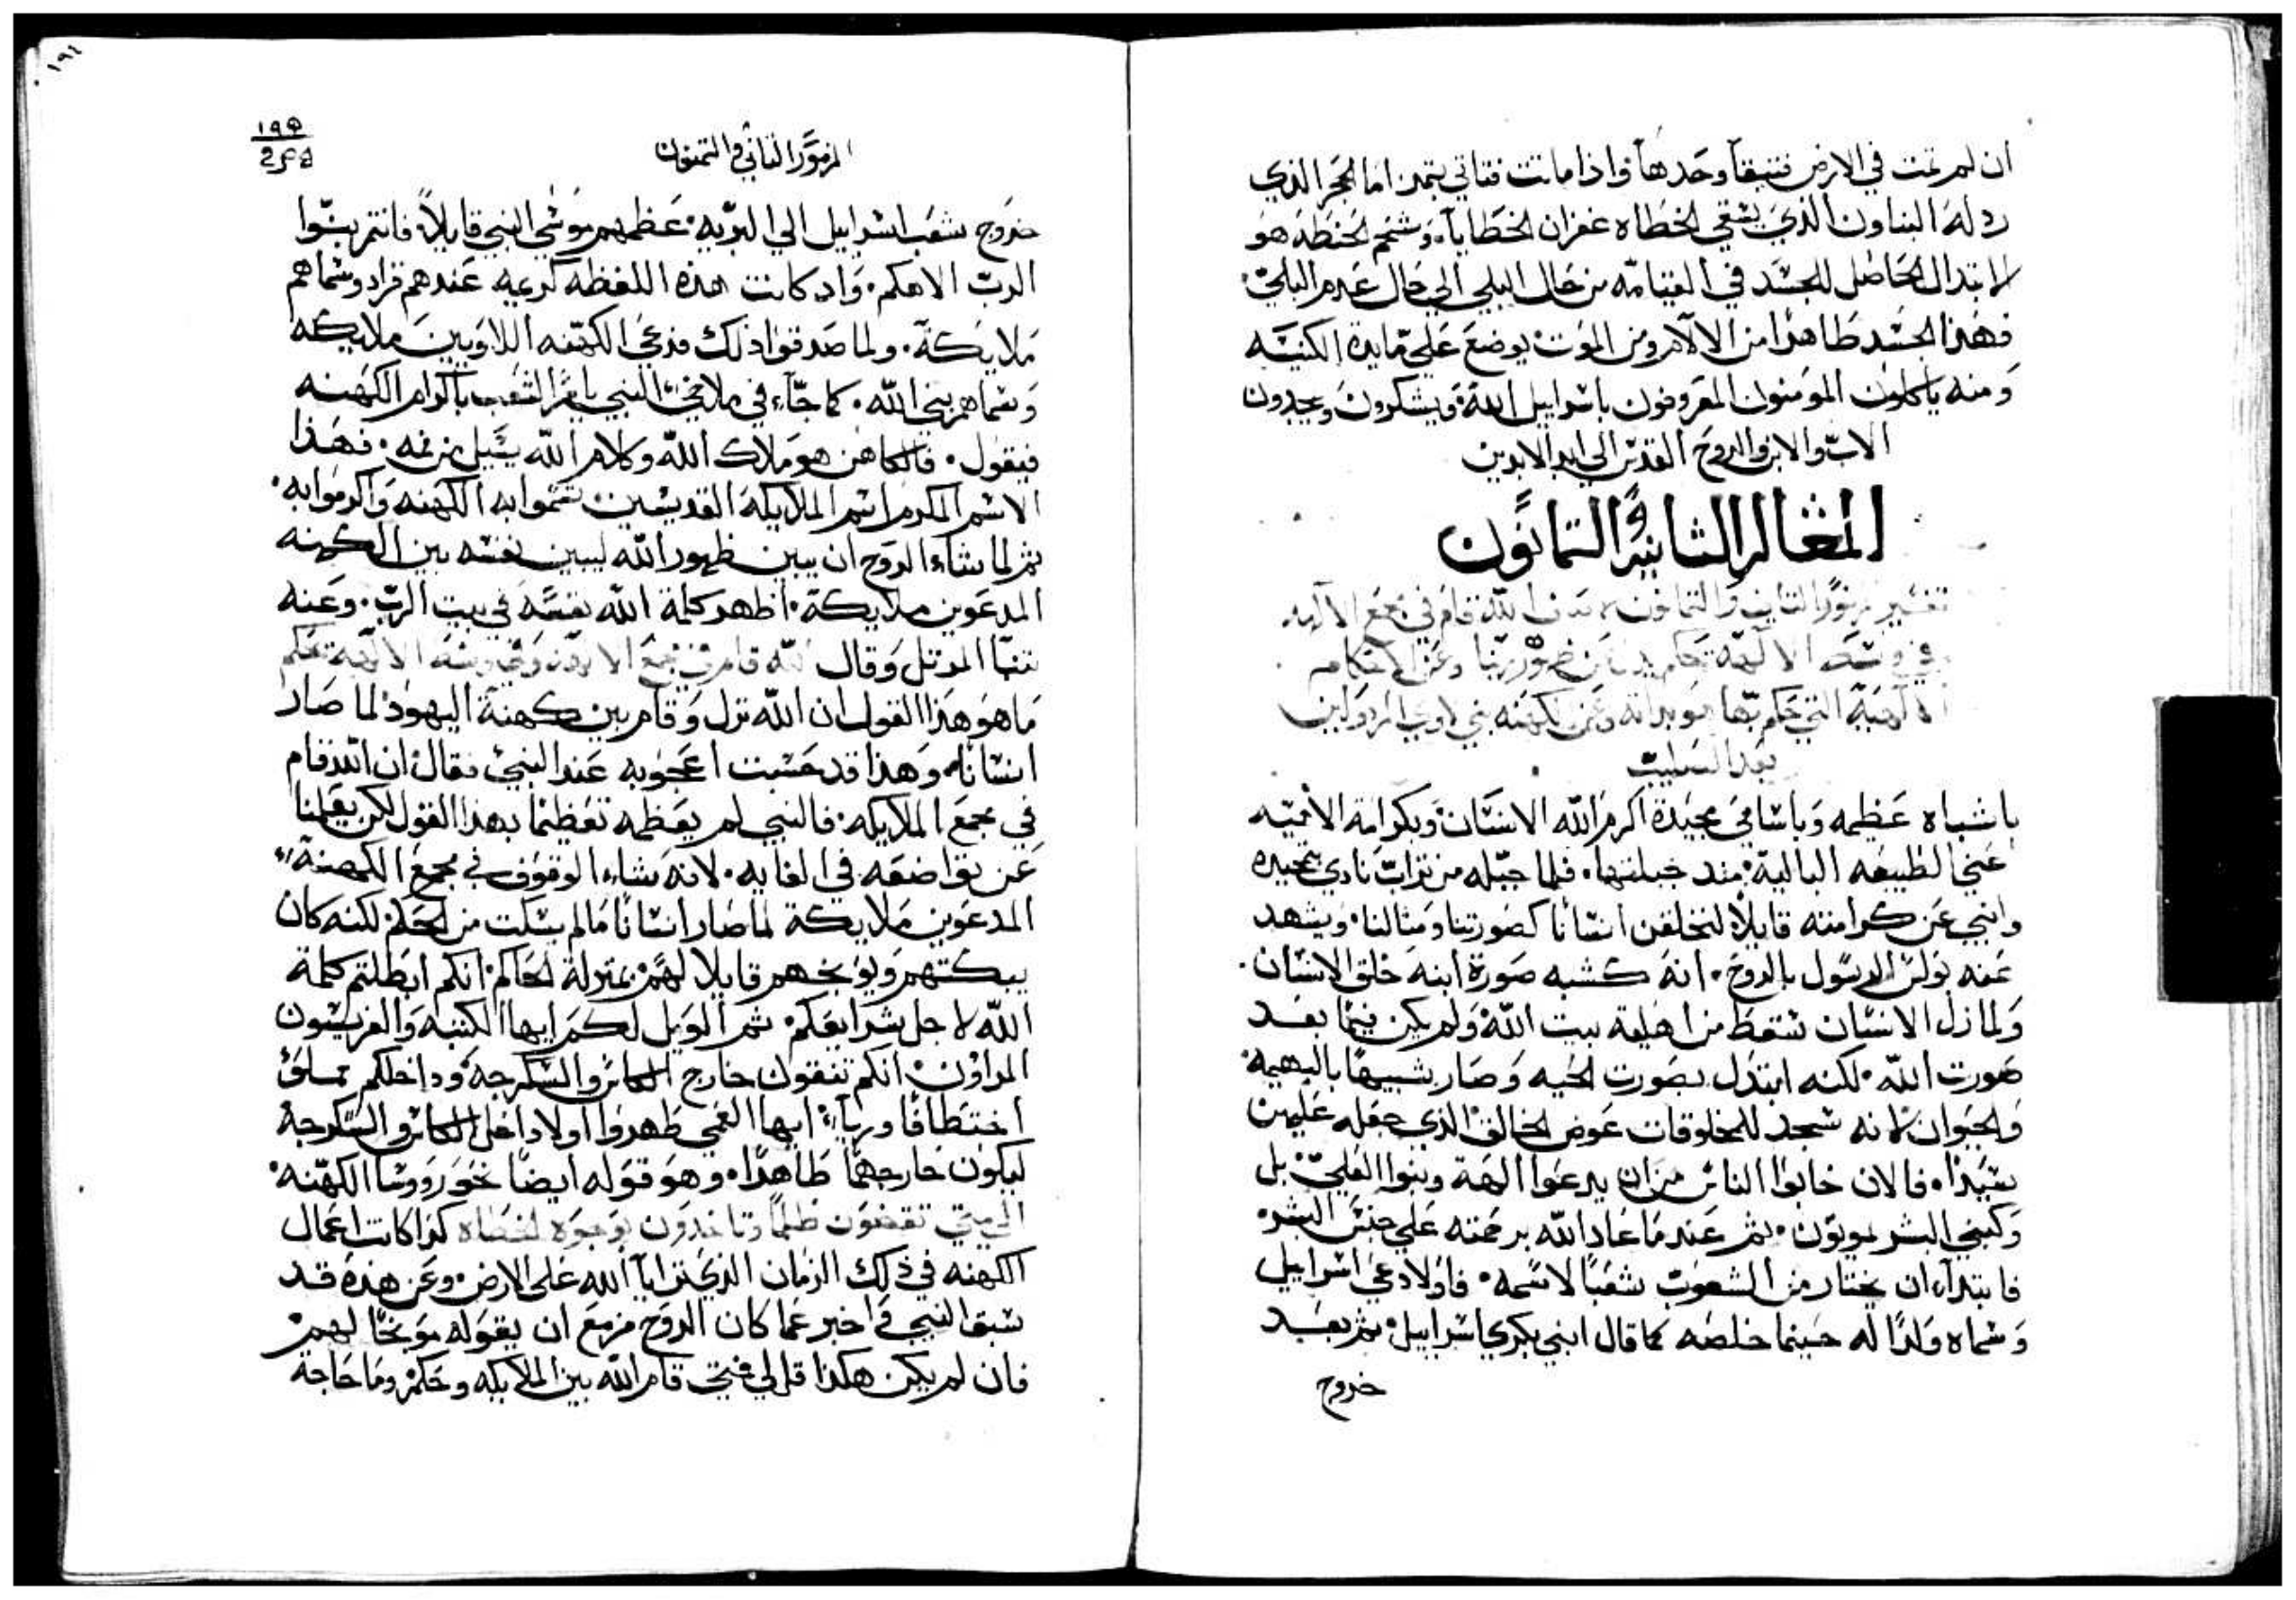 ان لم تمت في الارض فتبقآ وحدهآ واذا ماتت فتاتي بتمر اما الحجر الذي
رد له البناون الذي يسقي الخطاه غفران الخطايآ وشحم الحنطه هو
الابتدال الحاصل للجسد في القيامه من حال البلي الي حال عدم البلي
فهذا الجسد طاهرا من الالام ومن الموت يوضع علي مايدة الكنيسه
ومنه ياكلون المومنون المعروفون باسراييل الله ويشكرون ويمجدون
الاب والابن والروح القدس الي ابد الابدين
المقاله الثانيه والثمانون
تفسير مزمور الثاني والثمانون الله قام في مجمع الالهه
في وسط الالهه يحكم
الالهية التي حكم بها وعن كهنه بني لاوي
باشباه عظيمه وباسامي مجيدة اكرم الله الانسان وبكرامة الالهيه
اعني الطبيعه الباليه منذ جبلتها فلما جبله من تراب نادي بتمجيده
وانبي عن كرامته قايلا لنخلقن انسانا كصورتنا ومثالنا ويشهد
عنه بولس الرسول بالروح انه كشبه صورة ابنه خلق الانسان
ولما زل الانسان سقط من اهلية بيت الله ولم يكن فيما بعد
صورت الله لكنه ابتدل بصورت الحيه وصار شبيها بالبهيمه
والحيوان لانه سجد للمخلوقات عوض الخالق الذي جعله عليهن
سيدا فالان خابوا الناس من ان يدعوا الهة وبنوا العلي بل
وكبني البشر يموتون ثم عندما عاد الله برحمته علي جنس البشر
فابتدا ان يختار من الشعوب شعبا لاسمه فاولا دعي اسراييل
وسماه ولدا له حينما خلصه كما قال ابني بكري اسراييل ثم بعد
خروج
١٩٥
المزمور الثاني والثمنون
خروج شعب اسراييل الي البريه عظمهم موسي النبي قايلا فانتم بنوا
الرب الاهكم واذ كانت هذه اللفظه كريمه عندهم فزاد وسماهم
ملايكة ولما صدقوا ذلك فدعي الكهنه اللاويين ملايكه
وسماهم بني الله كما جآء في ملاخي النبي يامر الشعب باكرام الكهنه
فيقول فالكاهن هو ملاك الله وكلام الله يسيل من فمه فهذا
الاسم المكرم اسم الملايكه القديسين تسموا به الكهنه واكرموا به
ثم لما شاء الروح ان يبين ظهور الله ليبين نفسه بين الكهنه
المدعوين ملايكة اظهر كلمة الله نفسه في بيت الرب وعنه
تنبآ المرتل وقال الله قام في مجمع الالهه وفي وسط الالهة يحكم
ما هو هذا القول ان الله نزل وقام بين كهنة اليهود لما صار
انسانا وهذا قد حسبت اعجوبه عند النبي فقال ان الله قام
في مجمع الملايكه فالنبي لم يعظمه تعظيما بهذا القول لكن يعلمنا
عن تواضعه في الغايه لانه شاء الوقوف في مجمع الكهنة
المدعوين ملايكة لما صار انسانا ما لم يسكت من الحكم لكنه كان
يبكتهم ويوبخهم قايلا لهم بمنزلة الحاكم انكم ابطلتم كلمة
الله لاجل شرايعكم ثم الويل لكم ايها الكتبه والفريسيون
المراؤن انكم تنقون خارج الكاس والسكرجه وداخلكم
اختطافا ورياء ايها العمي طهروا اولا داخل الكاس والسكرجة
ليكون خارجهما طاهرا وهو قوله ايضا نحو رووسا الكهنه
الي متي تقضون ظلما وتاخذون بوجوه الخطاه كذا كانت اعمال
الكهنه في ذلك الزمان الذي ترايآ الله علي الارض وعن هذه قد
سبق النبي واخبر عما كان الروح مزمع ان يقوله موبخا لهم
فان لم يكن هكذا قل لي متي قام الله بين الملايكه وحكم وما حاجة